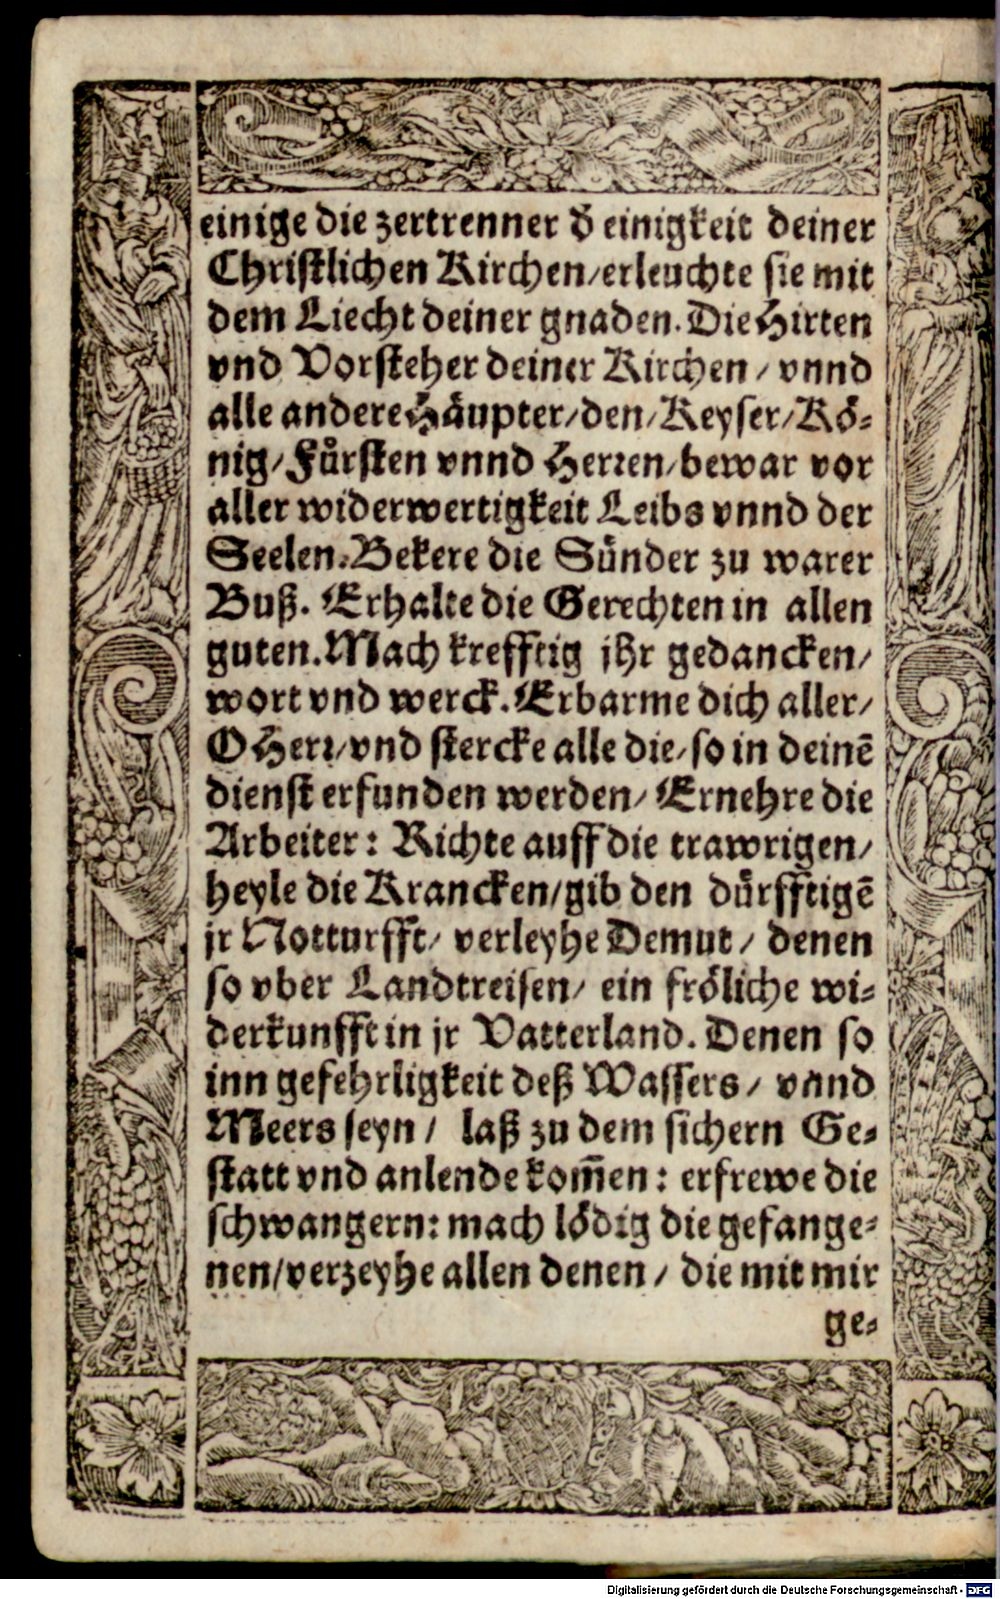 einige die zertrenner d̕ einigkeit deiner
Christlichen Kirchen/erleuchte sie mit
dem Liecht deiner gnaden. Die Hirten
vnd Vorsteher deiner Kirchen / vnnd
alle andere Häupter/den/Keyser/Kö⸗
nig/Fürsten vnnd Herren/bewar vor
aller widerwertigkeit Leibs vnnd der
Seelen. Bekere die Sünder zu warer
Buß. Erhalte die Gerechten in allen
guten. Mach krefftig jhr gedancken/
wort vnd werck. Erbarme dich aller/
O Herr/vnd stercke alle die/so in deinē
dienst erfunden werden/ Ernehre die
Arbeiter: Richte auff die trawrigen/
heyle die Krancken/gib den dürfftigē
jr Notturfft/ verleyhe Demut / denen
so vber Landtreisen/ ein fröliche wi⸗
derkunfft in jr Vatterland. Denen so
inn gefehrligkeit deß Wassers / vnnd
Meers seyn / laß zu dem sichern Ge⸗
statt vnd anlende kom̄en: erfrewe die
schwangern: mach lödig die gefange⸗
nen/verzeyhe allen denen / die mit mir
ge⸗
Digitalisierung gefördert durch die Deutsche Forschungsgemeinschaft - DFG